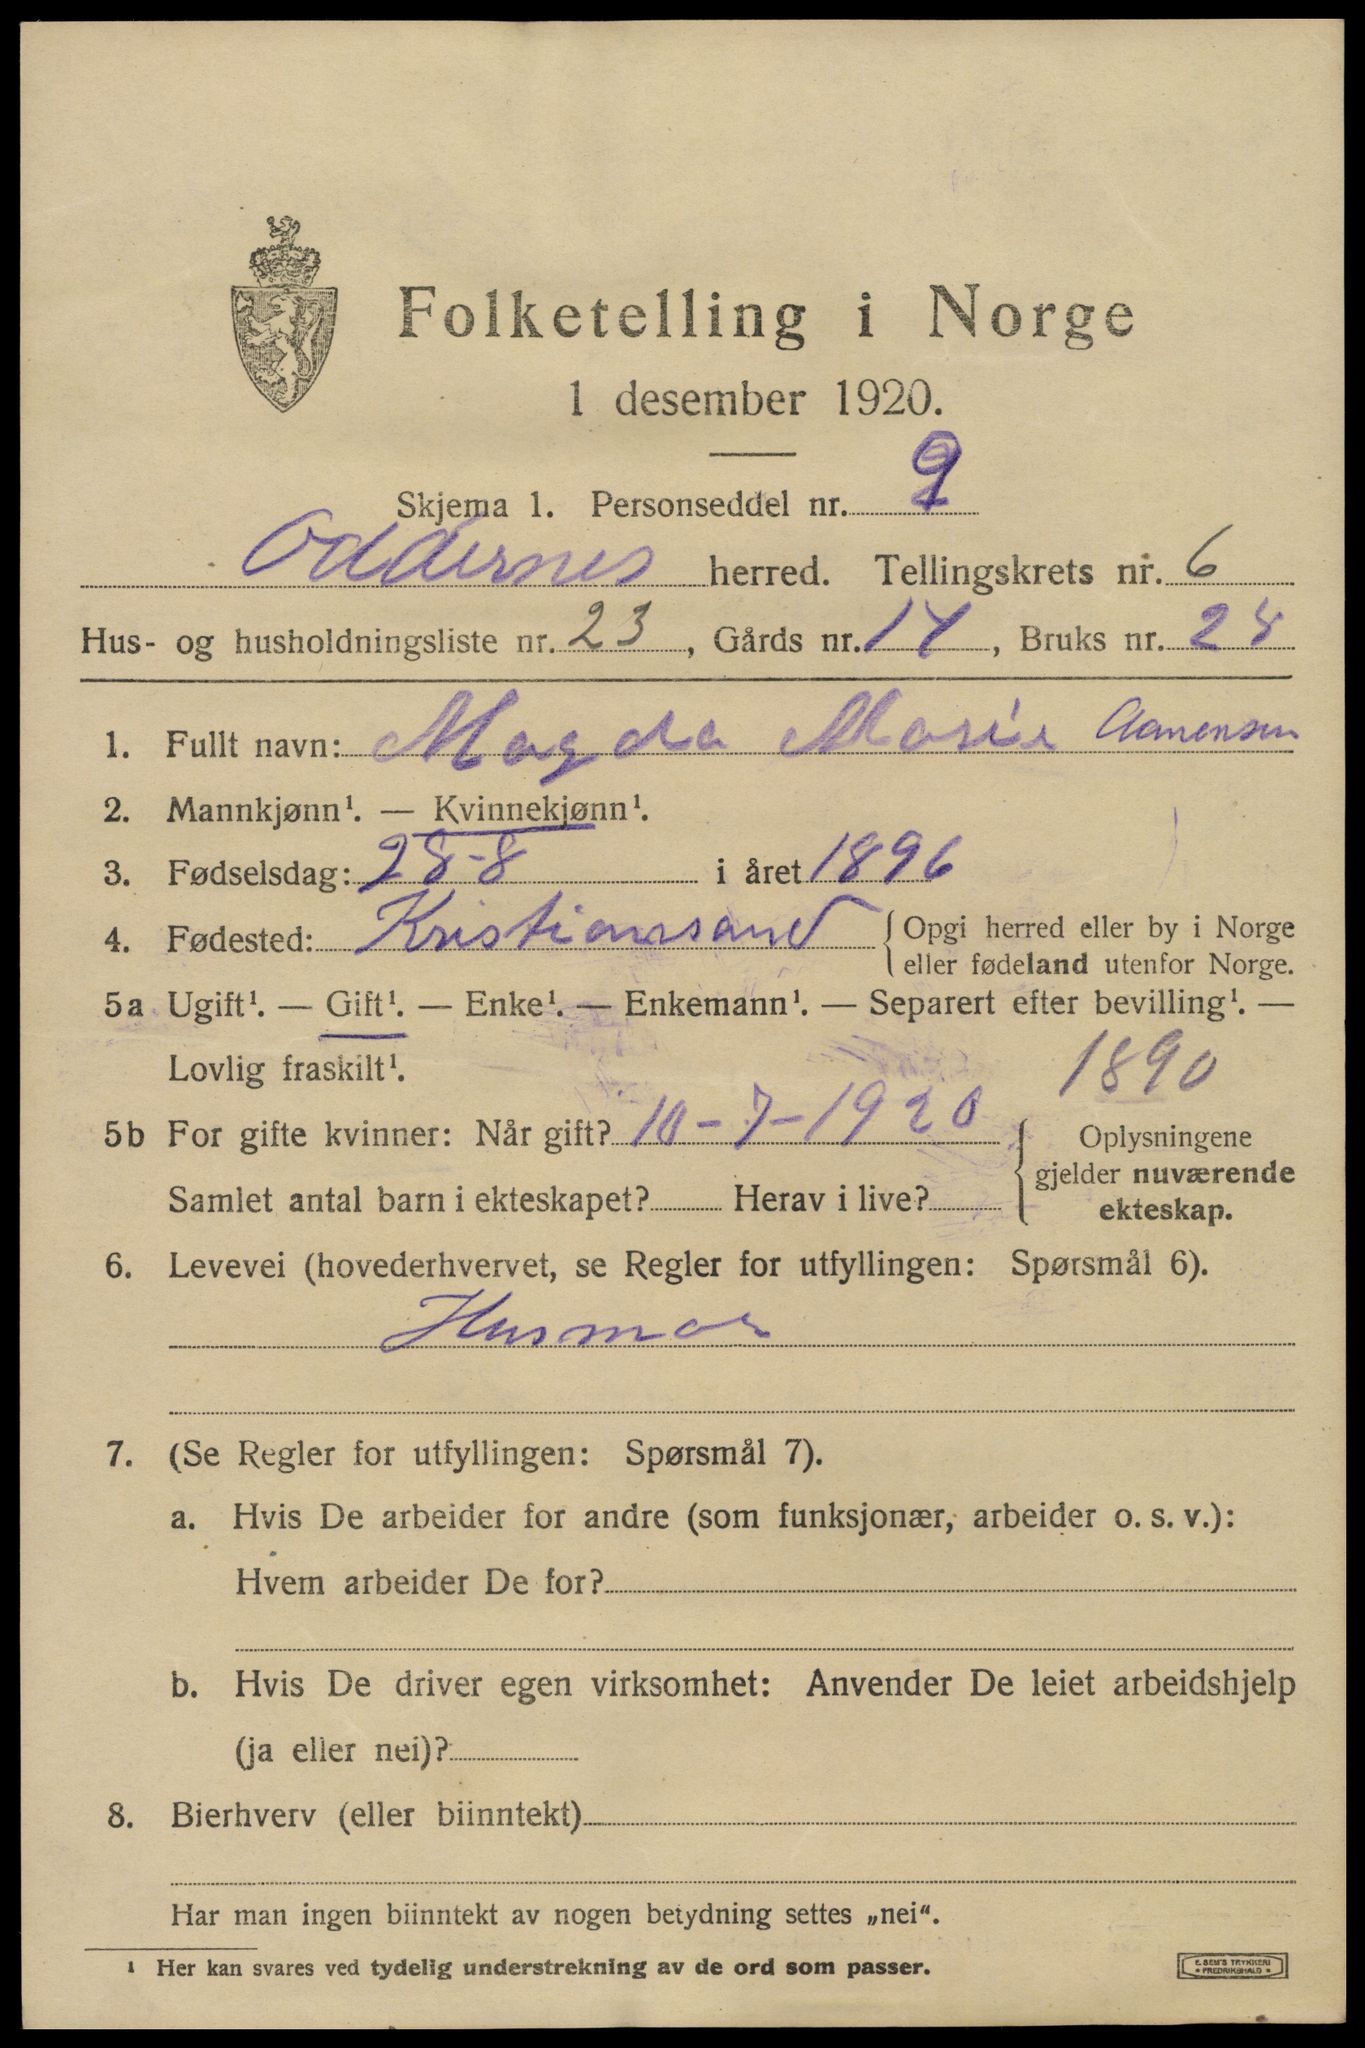 Folketelling i Norge
1 desember 1920.
Skjema 1. Personseddel nr. 2
Oddernes herred. Tellingskrets nr. 6
Hus- og husholdningsliste nr. 23, Gårds nr. 14, Bruks nr. 28
1. Fullt navn: Magda Marie Aanensen
2. Mannkjønn¹. — Kvinnekjønn¹.
3. Fødselsdag: 28-8 i året 1896
4. Fødested: Kristiansand { Opgi herred eller by i Norge
eller fødeland utenfor Norge.
5a Ugift¹. — Gift¹. — Enke¹. — Enkemann¹. — Separert efter bevilling¹. —
Lovlig fraskilt¹. 1890
5b For gifte kvinner: Når gift? 10-7-1920 { Oplysningene
gjelder nuværende
Samlet antal barn i ekteskapet? Herav i live? ekteskap.
6. Levevei (hovederhvervet, se Regler for utfyllingen: Spørsmål 6).
Husmor
7. (Se Regler for utfyllingen: Spørsmål 7).
a. Hvis De arbeider for andre (som funksjonær, arbeider o. s. v.):
Hvem arbeider De for?
b. Hvis De driver egen virksomhet: Anvender De leiet arbeidshjelp
(ja eller nei)?
8. Bierhverv (eller biinntekt)
Har man ingen biinntekt av nogen betydning settes „nei".
¹ Her kan svares ved tydelig understrekning av de ord som passer.
E. SEM'S TRYKKERI
* FREDRIKSHALD *